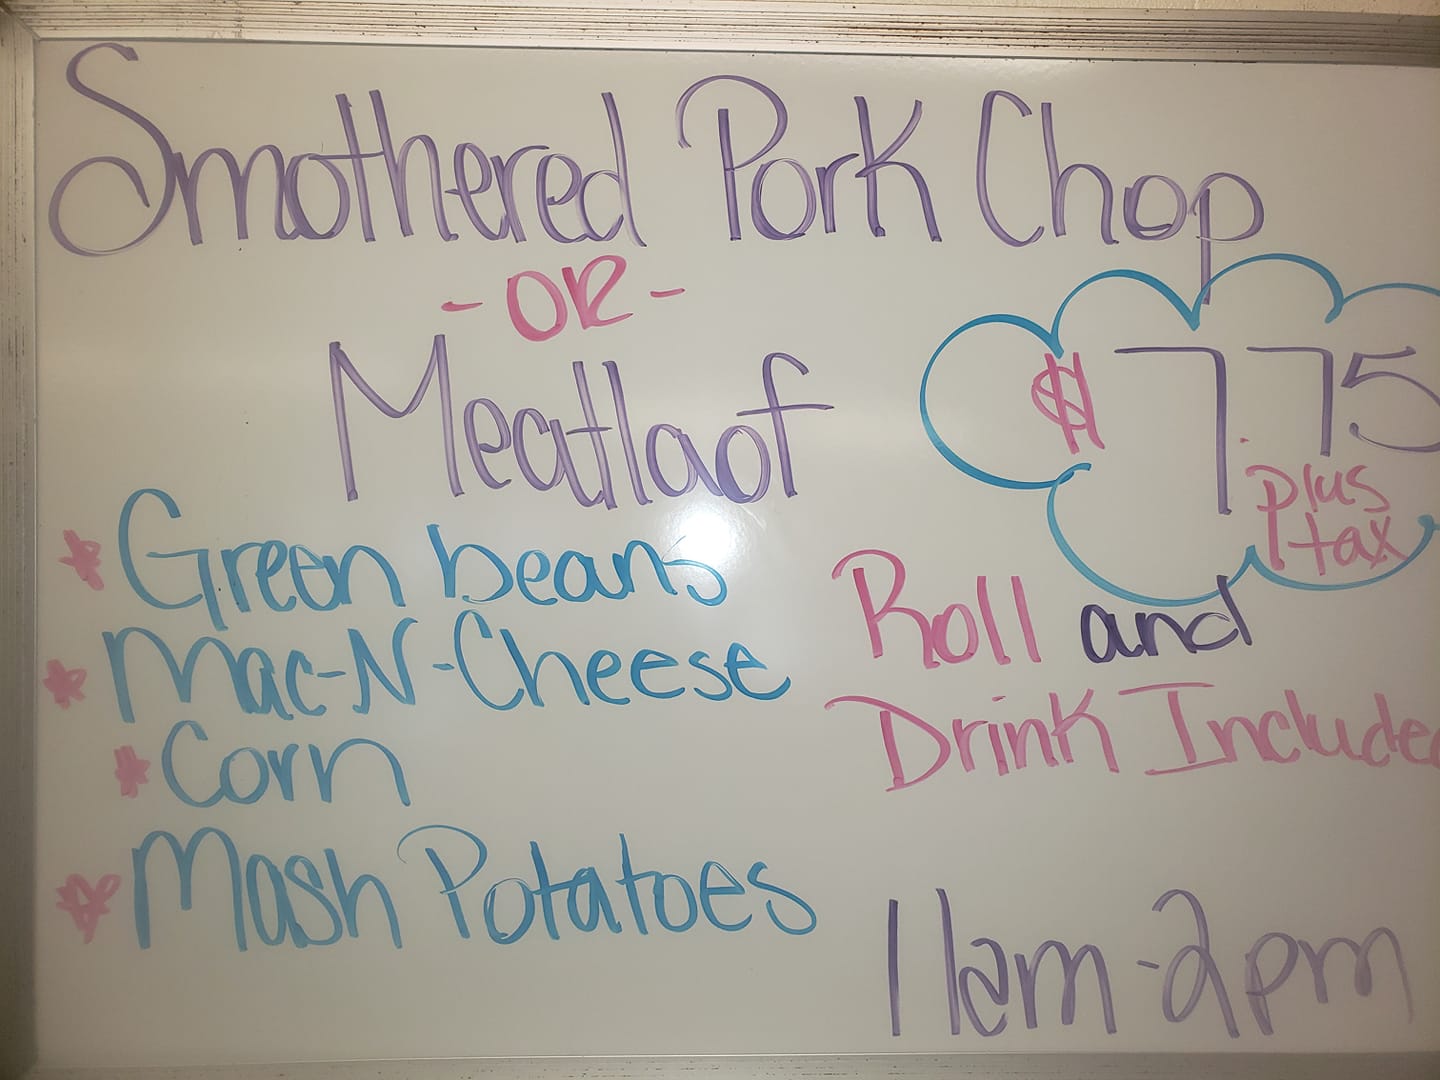 Smothered Pork Chop
- OR -
Meatlaof
$7.75
plus
tax
* Green beans
* Mac-N-Cheese
* Corn
* Mash Potatoes
Roll and
Drink Included
11am-2pm